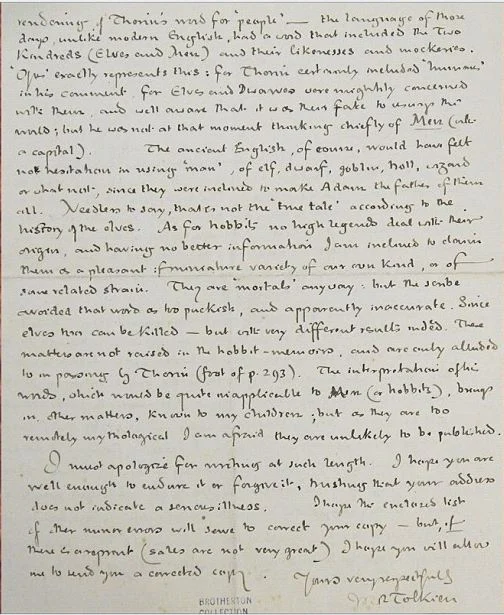 rendering of Thorin's word for 'people' — the language of those
days, unlike modern English, had a word that included the Two
Kindreds (Elves and Men) and their likenesses and mockeries.
exactly represents this: for Thorin certainly included 'humans'
in his comment, for Elves and Dwarves were mightily concerned
with them, and well aware that it was their fate to usurp the
world; but he was not at that moment thinking chiefly of Men (with
a capital). The ancient English, of course, would have felt
no hesitation in using 'man', of elf, dwarf, goblin, troll, wizard
or what not, since they were inclined to make Adam the father of them
all. Needless to say, that is not the 'true tale' according to the
history of the elves. As for hobbits no high legends deal with their
origin, and having no better information I am inclined to claim
them as a pleasant if miniature variety of our own kind, or of
some related strain. They are 'mortals' anyway: but the scribe
avoided that word as too puckish, and apparently inaccurate. Since
elves too can be killed — but with very different results indeed. These
matters are not raised in the hobbit-memoirs, and are only alluded
to in passing by Thorin (foot of p. 293). The interpretation of his
words, which would be quite inapplicable to Men (or hobbits), brings
in other matters, known to my children; but as they are too
remotely mythological I am afraid they are unlikely to be published.
I must apologize for writing at such length. I hope you are
well enough to endure it or forgive it, trusting that your address
does not indicate a serious illness. I hope the enclosed list
of other minor errors will serve to correct your copy — but, if
there is a reprint (sales are not very great) I hope you will allow
me to send you a corrected copy.
Yours very respectfully
R Tolkien
BROTHERTON
COLLECTION